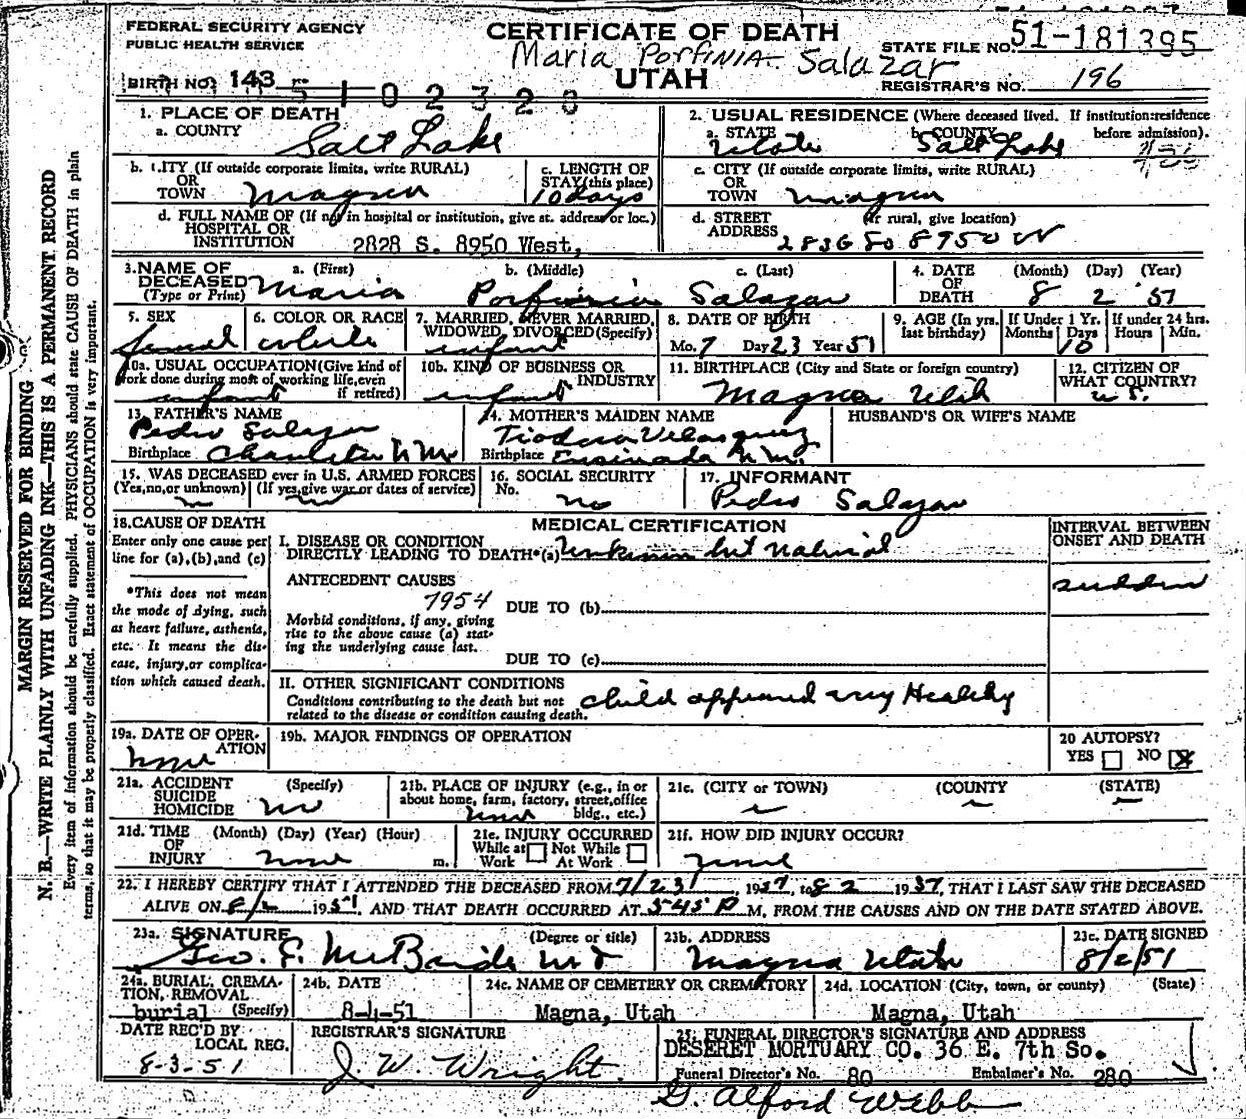 FEDERAL SECURITY AGENCY
PUBLIC HEALTH SERVICE
CERTIFICATE OF DEATH
Maria PORFINIA Salazar
UTAH
STATE FILE NO. 51-181395
BIRTH NO. 143
REGISTRAR'S NO. 196
51 0 2 3 2 8
1. PLACE OF DEATH
a. COUNTY Salt Lake
2. USUAL RESIDENCE (Where deceased lived. If institution:residence before admission).
a. STATE Utah b. COUNTY Salt Lake
b. CITY (If outside corporate limits, write RURAL)
OR
TOWN Magna
c. LENGTH OF
STAY (this place)
10 days
c. CITY (If outside corporate limits, write RURAL)
OR
TOWN Magna
d. FULL NAME OF (If not in hospital or institution, give st. address or loc.)
HOSPITAL OR
INSTITUTION 2828 S. 8950 West,
d. STREET (If rural, give location)
ADDRESS 2836 So 8950 W
3. NAME OF
DECEASED
(Type or Print)
a. (First) Maria
b. (Middle) Porfinia
c. (Last) Salazar
4. DATE
OF
DEATH
(Month) (Day) (Year)
8 2 51
5. SEX
female
6. COLOR OR RACE
white
7. MARRIED, NEVER MARRIED,
WIDOWED, DIVORCED (Specify)
infant
8. DATE OF BIRTH
Mo. 7 Day 23 Year 51
9. AGE (In yrs. last birthday)
If Under 1 Yr.
Months Days
10
If under 24 hrs.
Hours Min.
10a. USUAL OCCUPATION (Give kind of
work done during most of working life, even
if retired)
infant
10b. KIND OF BUSINESS OR
INDUSTRY
infant
11. BIRTHPLACE (City and State or foreign country)
Magna Utah
12. CITIZEN OF
WHAT COUNTRY?
U.S.
13. FATHER'S NAME
Pedro Salazar
Birthplace N M
14. MOTHER'S MAIDEN NAME
Tiodora Velasquez
Birthplace Ensinada N.M.
HUSBAND'S OR WIFE'S NAME
15. WAS DECEASED ever in U.S. ARMED FORCES
(Yes, no, or unknown) (If yes, give war or dates of service)
no
16. SOCIAL SECURITY
No. no
17. INFORMANT
Pedro Salazar
18. CAUSE OF DEATH
Enter only one cause per
line for (a), (b), and (c)
*This does not mean
the mode of dying, such
as heart failure, asthenia,
etc. It means the dis-
ease, injury, or complica-
tion which caused death.
MEDICAL CERTIFICATION
INTERVAL BETWEEN
ONSET AND DEATH
I. DISEASE OR CONDITION
DIRECTLY LEADING TO DEATH*(a) Unknown but natural
sudden
ANTECEDENT CAUSES
7954
DUE TO (b)
Morbid conditions, if any, giving
rise to the above cause (a) stat-
ing the underlying cause last.
DUE TO (c)
II. OTHER SIGNIFICANT CONDITIONS
Conditions contributing to the death but not
related to the disease or condition causing death.
child appeared very Healthy
19a. DATE OF OPER-
ATION
none
19b. MAJOR FINDINGS OF OPERATION
20 AUTOPSY?
YES NO X
21a. ACCIDENT (Specify)
SUICIDE
HOMICIDE no
21b. PLACE OF INJURY (e.g., in or
about home, farm, factory, street, office
bldg., etc.)
none
21c. (CITY or TOWN) (COUNTY) (STATE)
21d. TIME (Month) (Day) (Year) (Hour)
OF
INJURY none m.
21e. INJURY OCCURRED
While at Not While
Work At Work
21f. HOW DID INJURY OCCUR?
none
22. I HEREBY CERTIFY THAT I ATTENDED THE DECEASED FROM 7/23/, 1951, to 8 2 1951, THAT I LAST SAW THE DECEASED
ALIVE ON 8/2 1951, AND THAT DEATH OCCURRED AT 545 P M, FROM THE CAUSES AND ON THE DATE STATED ABOVE.
23a. SIGNATURE (Degree or title)
Geo. E. McBride M D
23b. ADDRESS
Magna Utah
23c. DATE SIGNED
8/2/51
24a. BURIAL, CREMA-
TION, REMOVAL
burial (Specify)
24b. DATE
8-4-51
24c. NAME OF CEMETERY OR CREMATORY
Magna, Utah
24d. LOCATION (City, town, or county) (State)
Magna, Utah
DATE REC'D BY
LOCAL REG.
8-3-51
REGISTRAR'S SIGNATURE
J. W. Wright
25. FUNERAL DIRECTOR'S SIGNATURE AND ADDRESS
DESERET MORTUARY CO. 36 E. 7th So.
Funeral Director's No. 80 Embalmer's No. 280
G. Alford Webb
MARGIN RESERVED FOR BINDING
N. B.—WRITE PLAINLY WITH UNFADING INK—THIS IS A PERMANENT RECORD
Every item of information should be carefully supplied. PHYSICIANS should state CAUSE OF DEATH in plain
terms, so that it may be properly classified. Exact statement of OCCUPATION is very important.